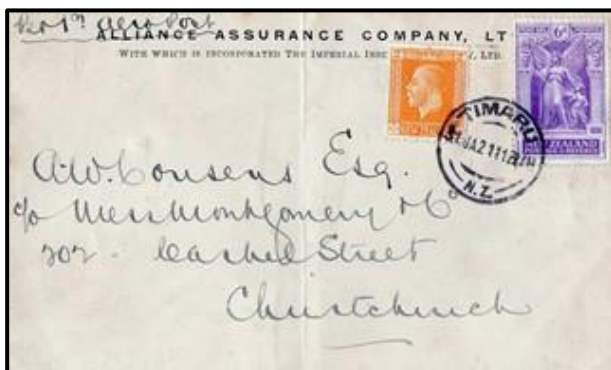 Per 1st Aero Post
ALLIANCE ASSURANCE COMPANY, LT
WITH WHICH IS INCORPORATED THE IMPERIAL , LTD.
6D
NEW ZEALAND
ZEALAND
TIMARU
N.Z.
A.W. Cousens Esq.
c/o Mess Montgomery & Co
202 Cashel Street
Christchurch